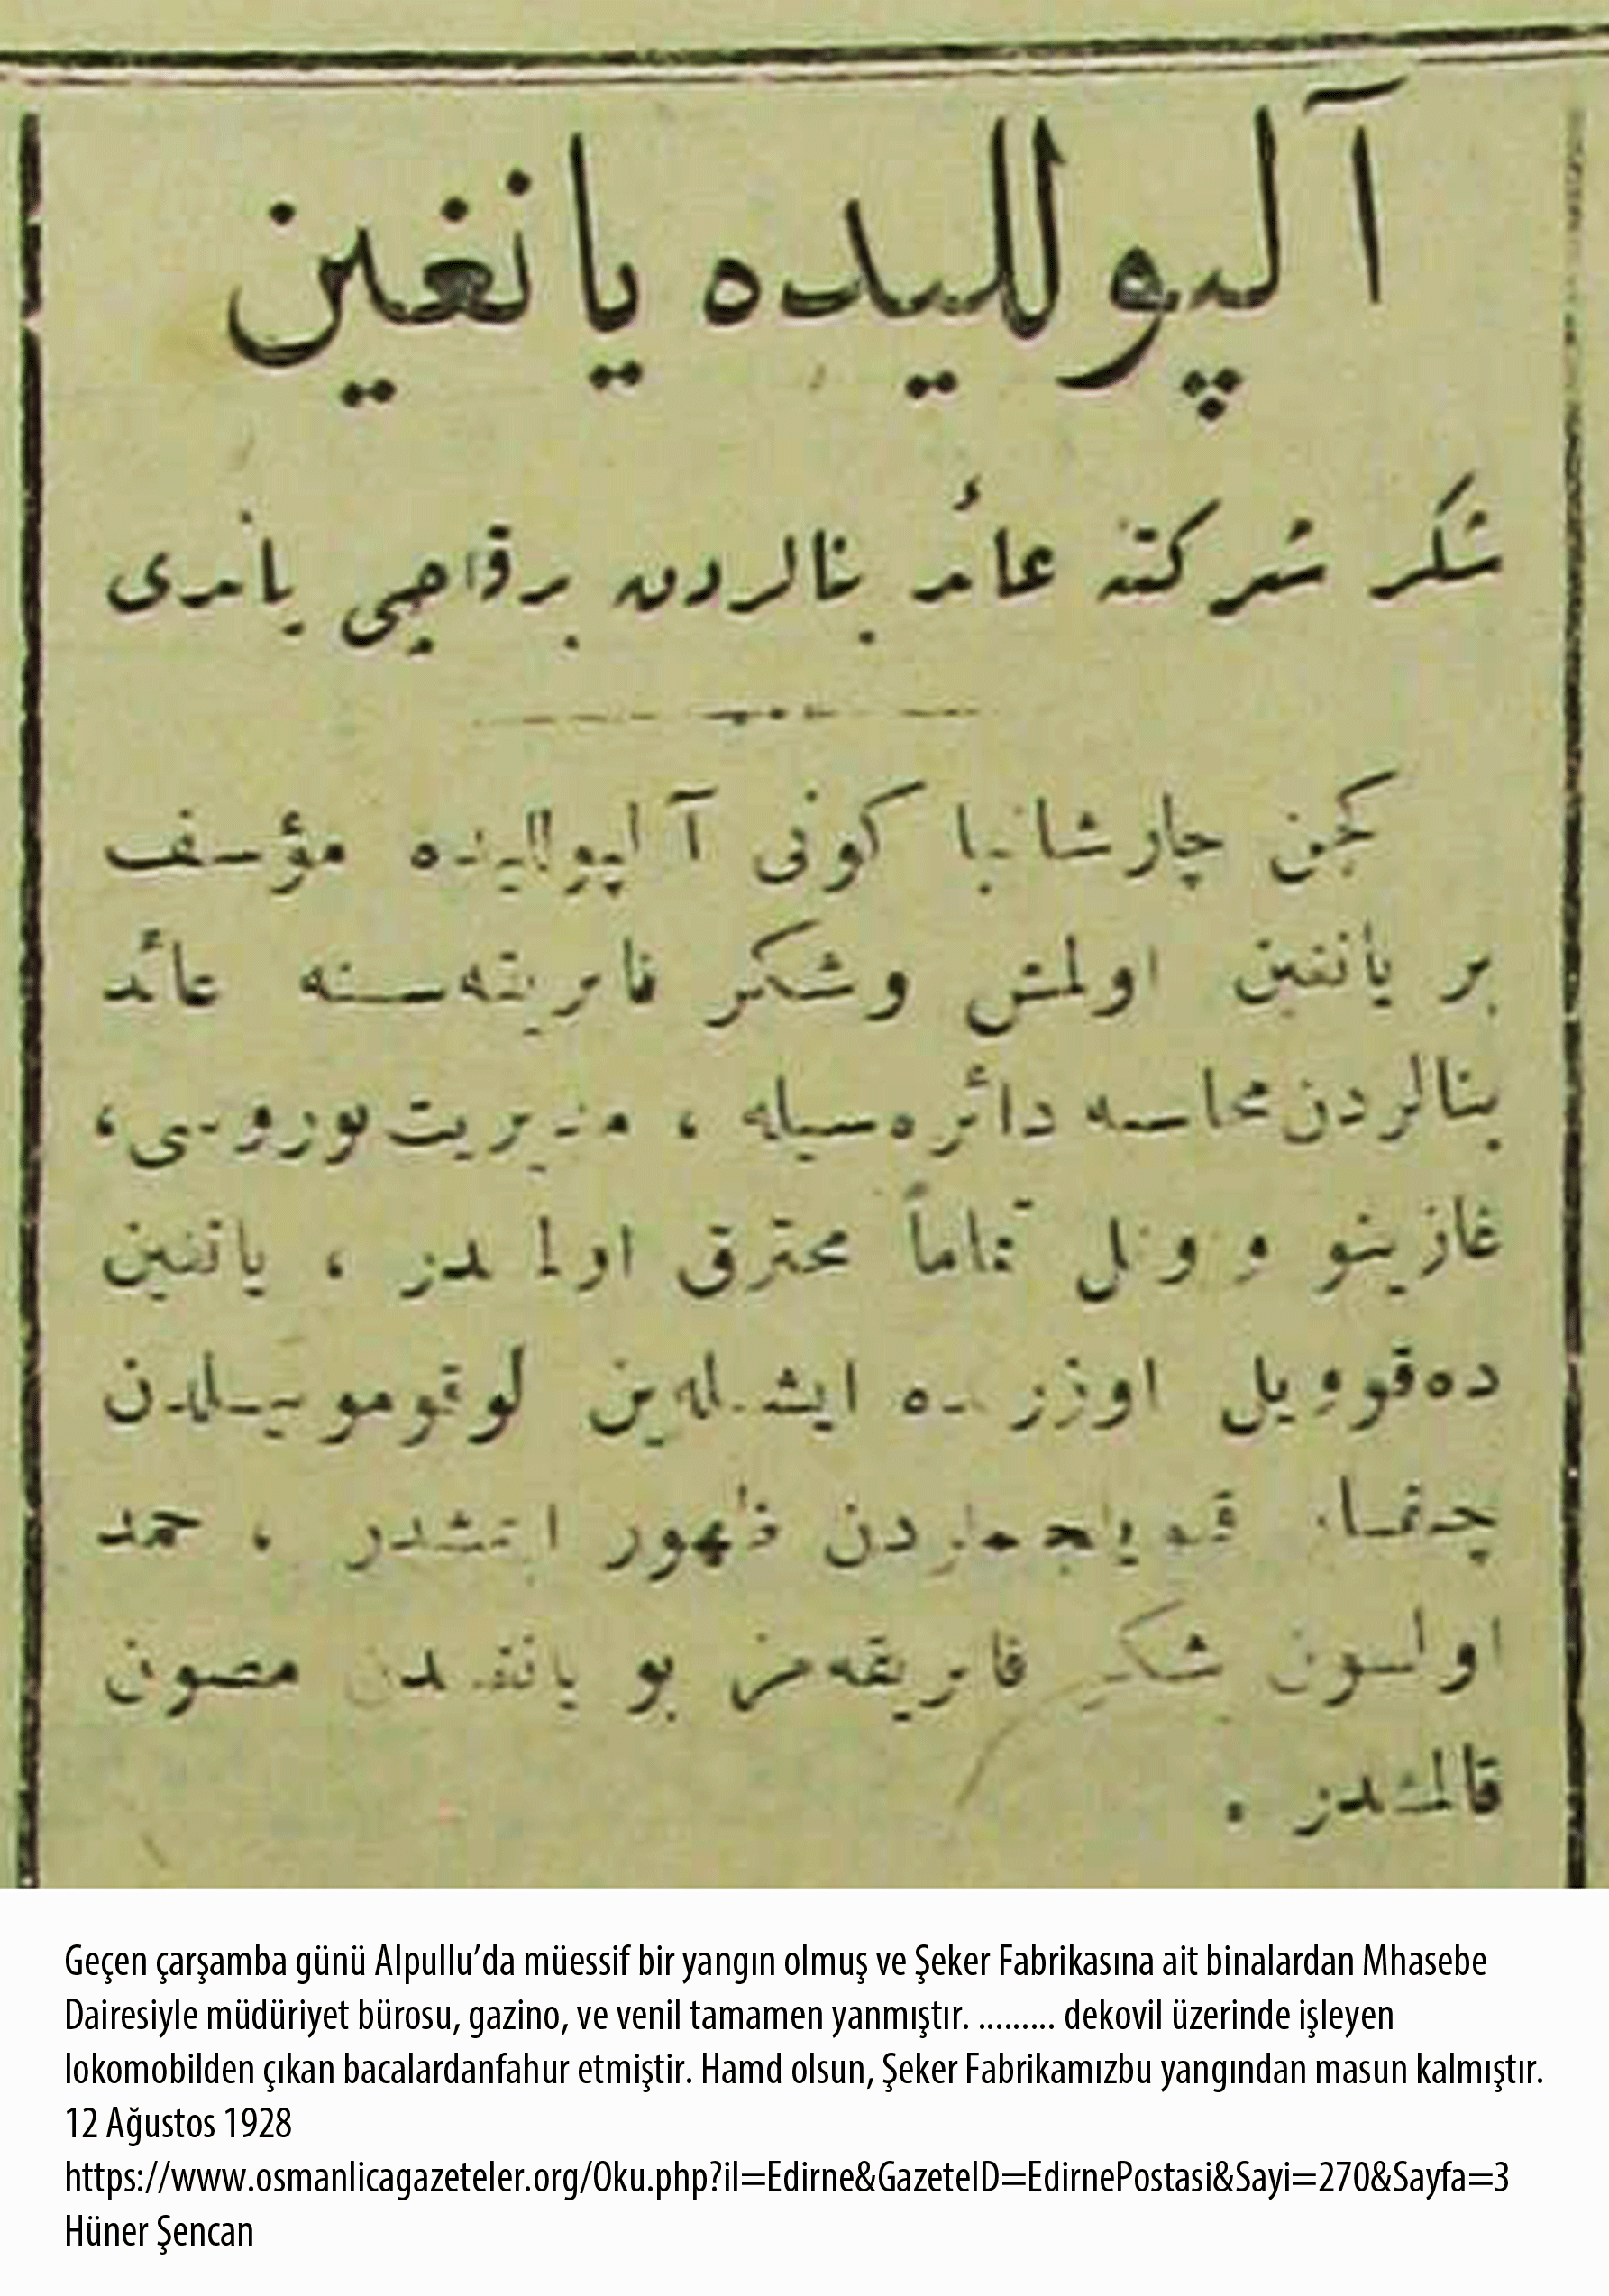 آلپوللیده یانغین
شکر شرکتنه عائد بنالردن برقاچی یاندی
کچن چارشانبا کونی آلپوللیده مؤسف
بر یانغین اولمش وشکر فابریقه‌سنه عائد
بنالردن محاسبه دائره‌سیله ، مدیریت بوروسی،
غازینو و وتل تماماً محترق اولمشدر ، یانغین
ده‌قوویل اوزرنده ایشله‌ین لوقوموبیللدن
چیقان قیویلجملردن ظهور ایتمشدر ، حمد
اولسون شکر فابریقه‌مز بو یانغیندن مصون
قالمشدر .
Geçen çarşamba günü Alpullu’da müessif bir yangın olmuş ve Şeker Fabrikasına ait binalardan Mhasebe
Dairesiyle müdüriyet bürosu, gazino, ve venil tamamen yanmıştır. ......... dekovil üzerinde işleyen
lokomobilden çıkan bacalardanfahur etmiştir. Hamd olsun, Şeker Fabrikamızbu yangından masun kalmıştır.
12 Ağustos 1928
https://www.osmanlicagazeteler.org/Oku.php?il=Edirne&GazeteID=EdirnePostasi&Sayi=270&Sayfa=3
Hüner Şencan